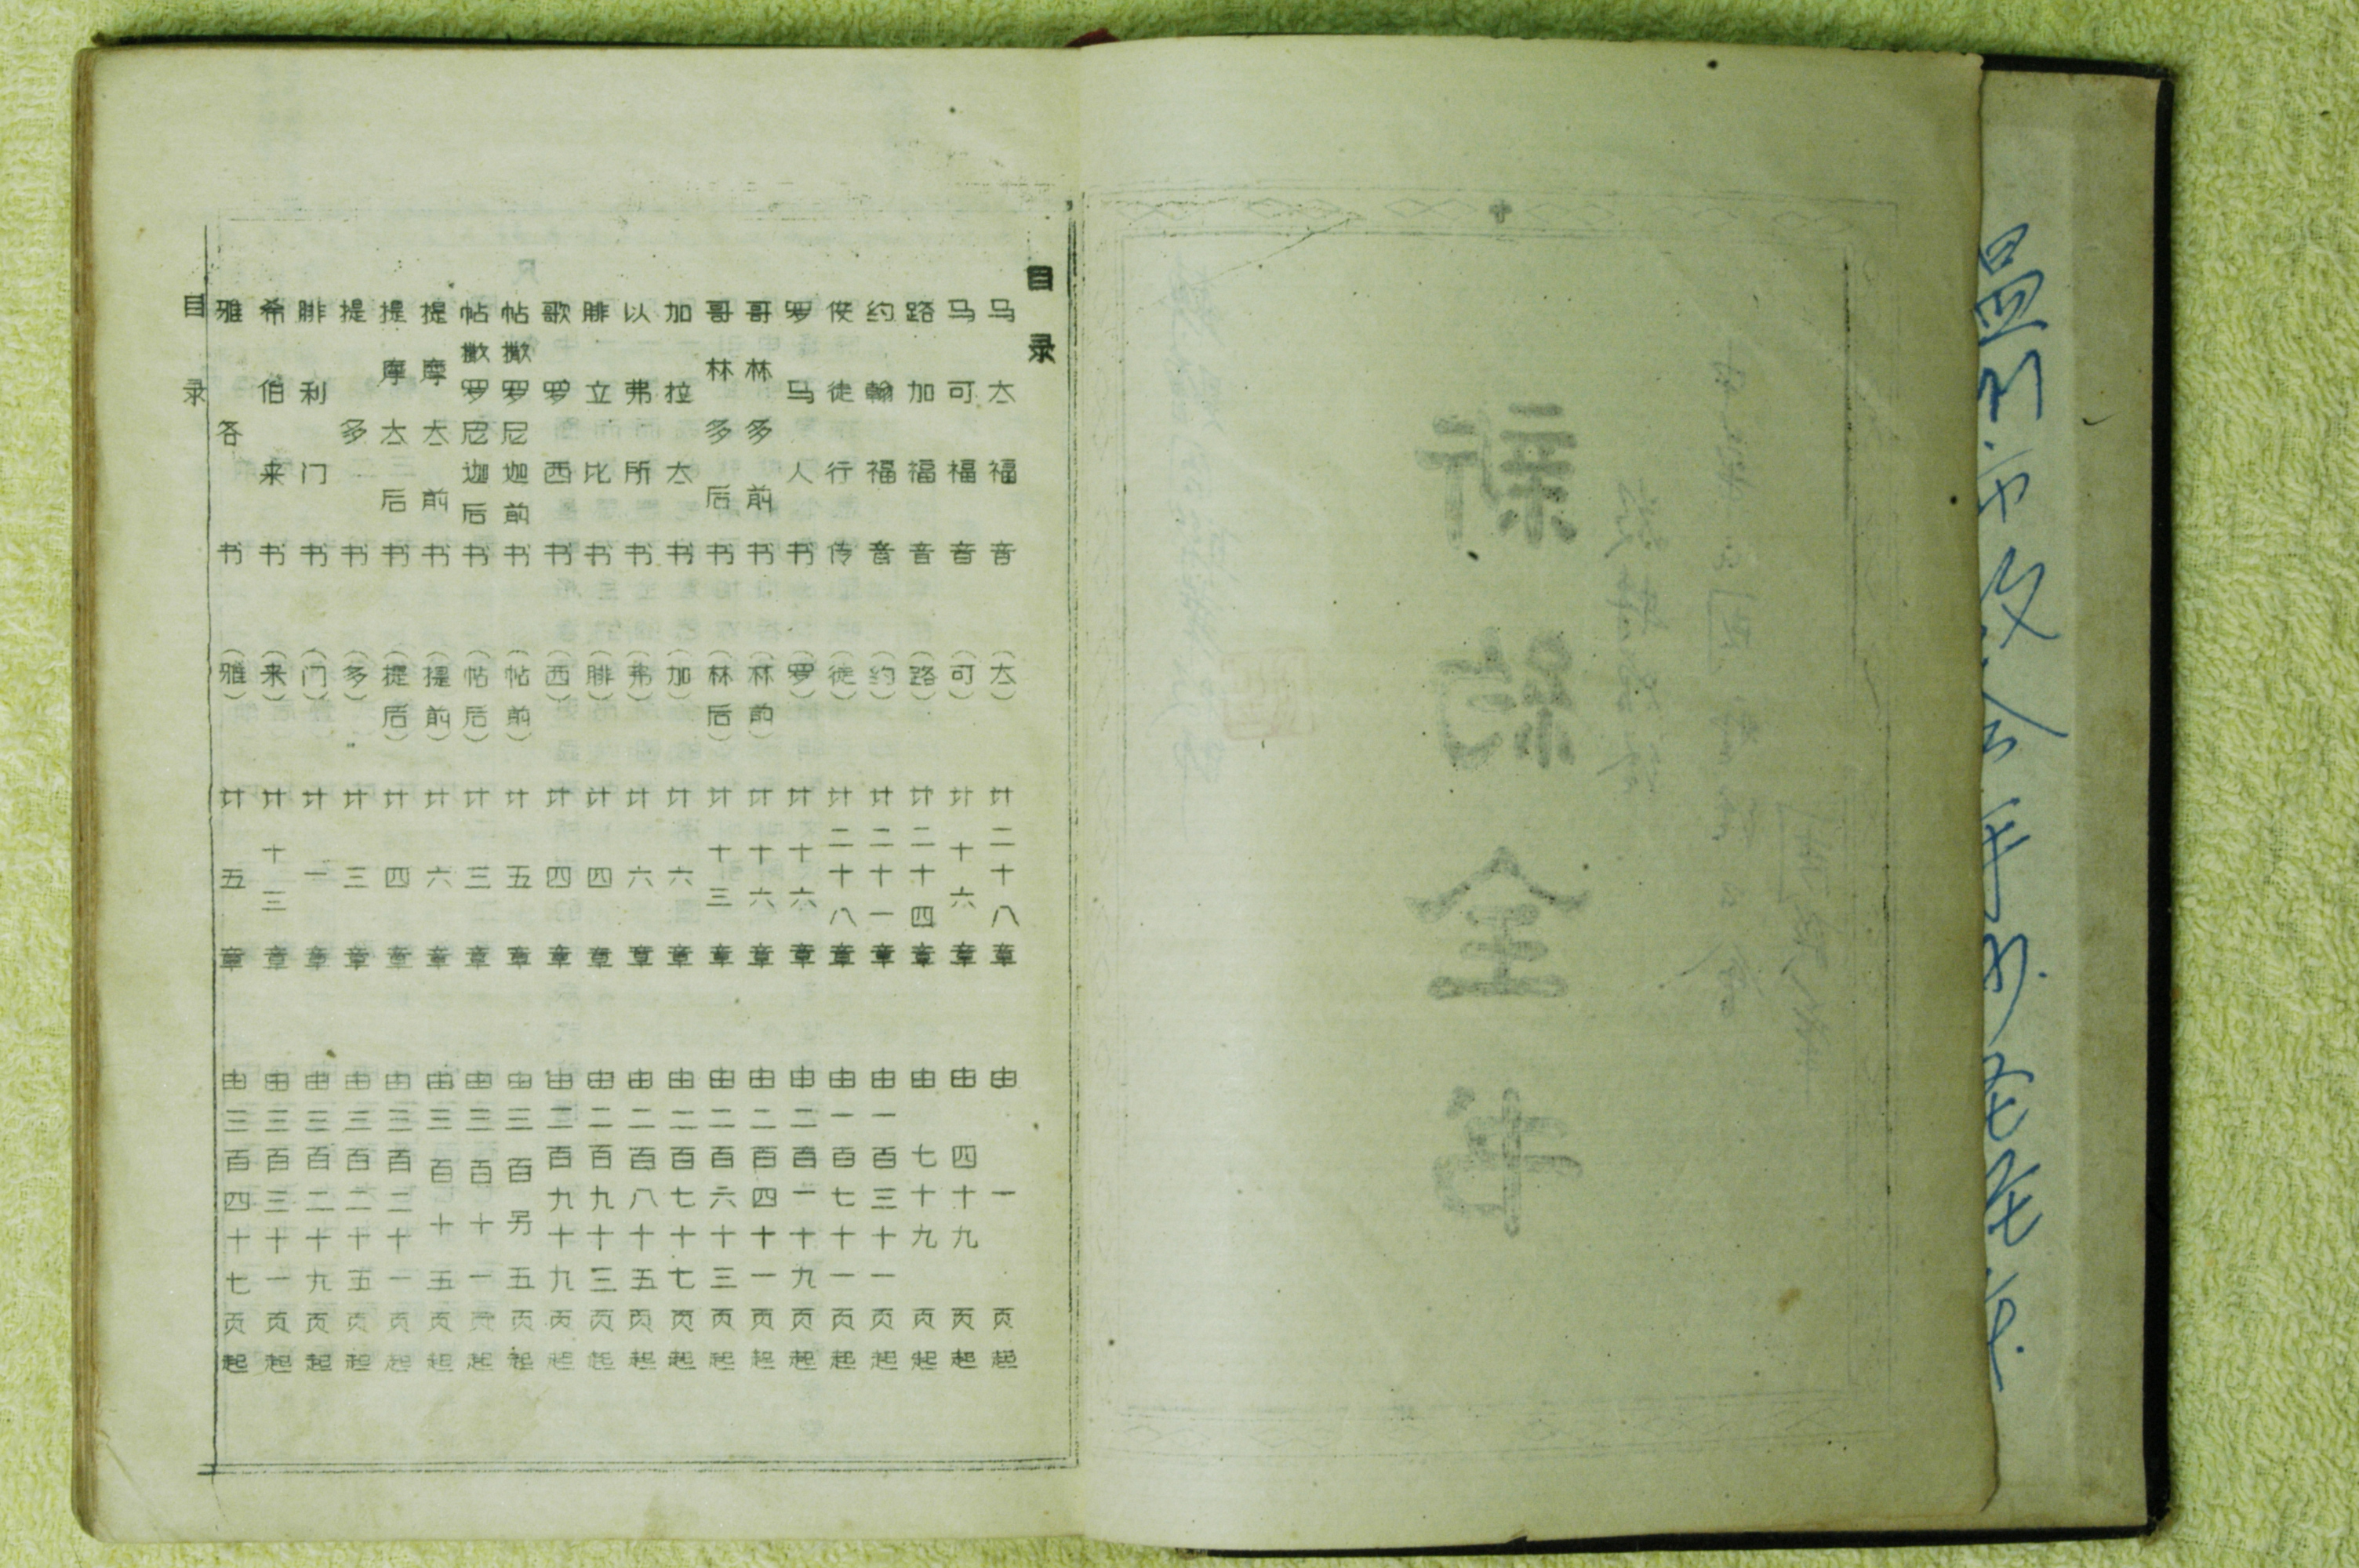 温州市
新約全书
目录
马太福音（太）计二十八章 由一页起
马可福音（可）计十六章 由四十九页起
路加福音（路）计二十四章 由七十九页起
约翰福音（约）计二十一章 由一百三十一页起
使徒行传（徒）计二十八章 由一百七十一页起
罗马人书（罗）计十六章 由二百一十九页起
哥林多前书（林前）计十六章 由二百四十一页起
哥林多后书（林后）计十三章 由二百六十三页起
加拉太书（加）计六章 由二百七十七页起
以弗所书（弗）计六章 由二百八十五页起
腓立比书（腓）计四章 由二百九十三页起
歌罗西书（西）计四章 由二百九十九页起
帖撒罗尼迦前书（帖前）计五章 由三百另五页起
帖撒罗尼迦后书（帖后）计三章 由三百十一页起
提摩太前书（提前）计六章 由三百十五页起
提摩太后书（提后）计四章 由三百二十一页起
提多书（多）计三章 由三百二十五页起
腓利门书（门）计一章 由三百二十九页起
希伯来书（来）计十三章 由三百三十一页起
雅各书（雅）计五章 由三百四十七页起
目录